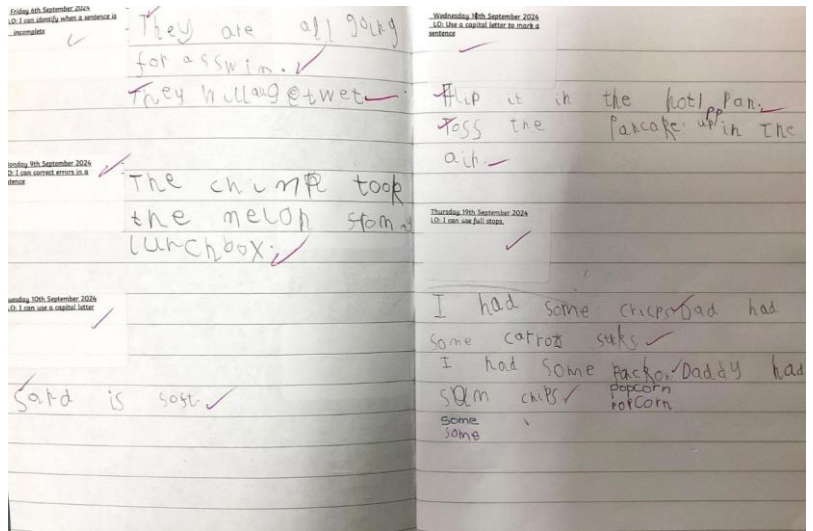 Friday 6th September 2024
LO: I can identify when a sentence is
incomplete
They are all going
for a sswim.
They will
Monday 9th September 2024
LO: I can correct errors in a
sentence
The chimp took
the melon
lunchbox.
Tuesday 10th September 2024
LO: I can use a capital letter
Sand is soft.
Wednesday 18th September 2024
LO: Use a capital letter to mark a
sentence
Flip it in the hotl pan.
Toss the pancake up in the
air.
Thursday 19th September 2024
LO: I can use full stops.
I had some cricps Dad had
some carrot
I had some packon Daddy had
popcorn
som chips
popcorn
some
some